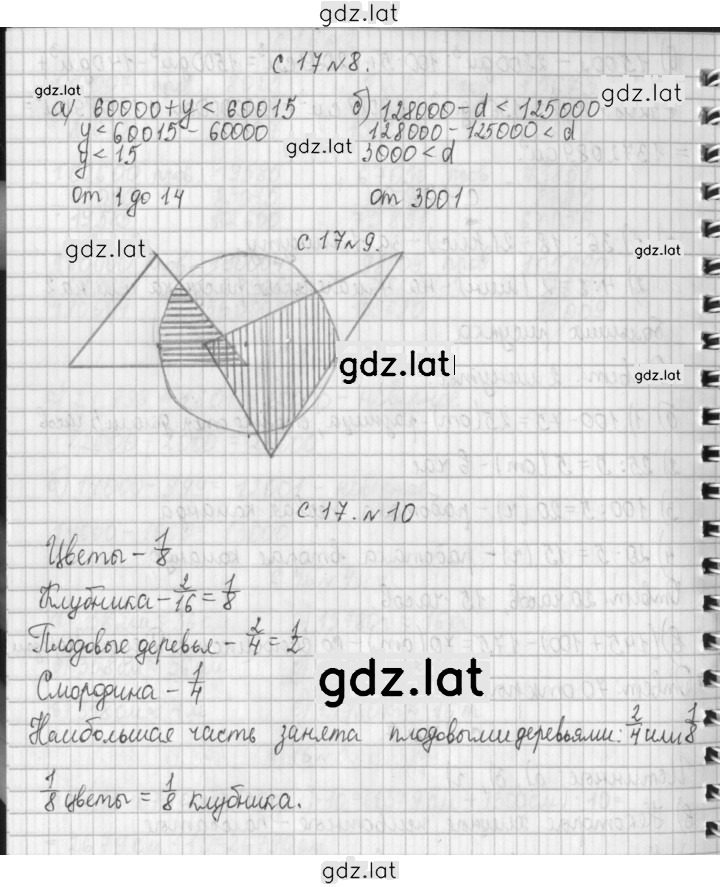 gdz.lat
С. 17 №8.
gdz.lat
а) 60000+y < 60015 б) 128000-d < 125000
gdz.lat
y < 60015 - 60000 128000-125000 < d
gdz.lat
y < 15 3000 < d
от 1 до 14 от 3001
С. 17 №9.
gdz.lat
gdz.lat
gdz.lat
gdz.lat
С. 17. №10
Цветы - 1/8
Клубника - 2/16 = 1/8
Плодовые деревья - 2/4 = 1/2
Смородина - 1/4
gdz.lat
Наибольшая часть занята плодовыми деревьями: 2/4 или 1/8
1/8 цветы = 1/8 клубника.
gdz.lat